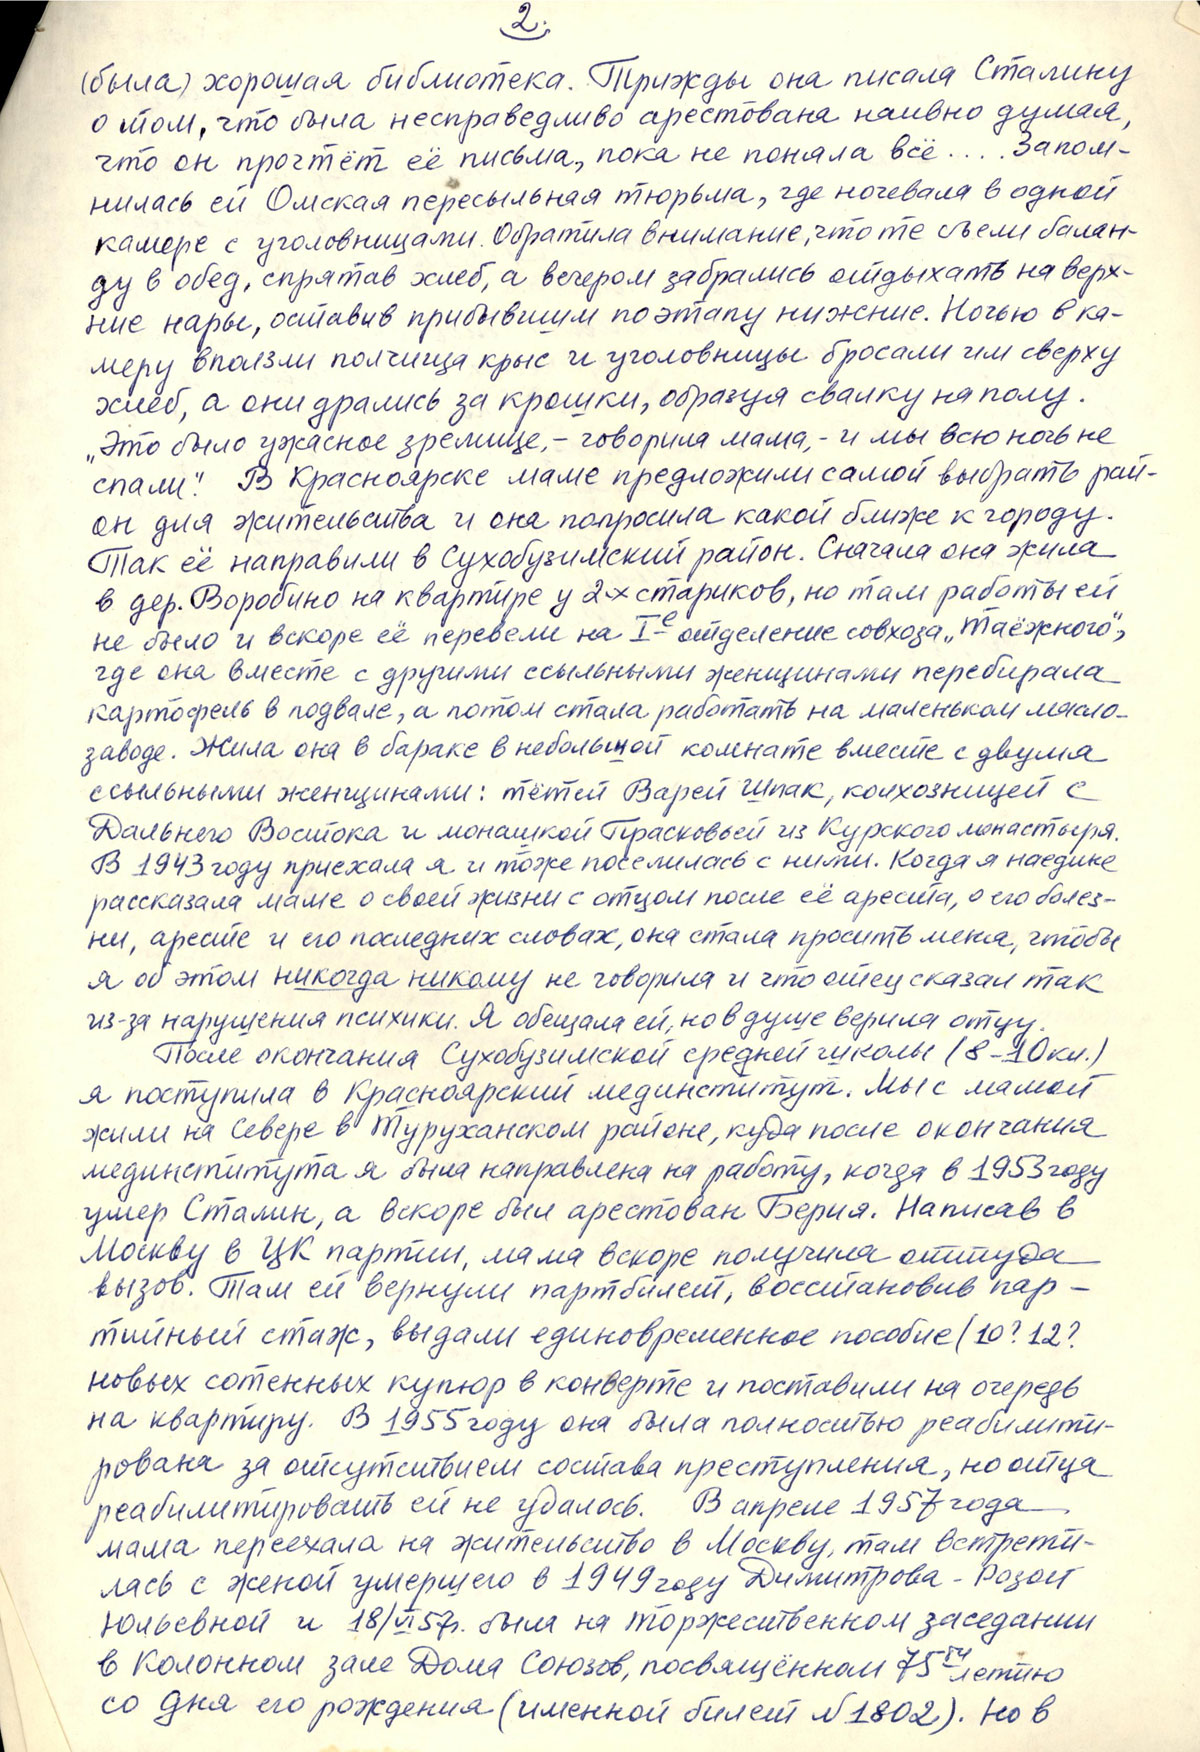 2.
(была) хорошая библиотека. Трижды она писала Сталину
о том, что была несправедливо арестована наивно думая,
что он прочтёт её письма, пока не поняла всё .... Запом-
нилась ей Омская пересыльная тюрьма, где ночевала в одной
камере с уголовницами. Обратила внимание, что те съели балан-
ду в обед, спрятав хлеб, а вечером забрались отдыхать на верх-
ние нары, оставив прибывшим по этапу нижние. Ночью в ка-
меру вползли полчища крыс и уголовницы бросали им сверху
хлеб, а они дрались за крошки, образуя свалку на полу.
„Это было ужасное зрелище, - говорила мама, - и мы всю ночь не
спали". В Красноярске маме предложили самой выбрать рай-
он для жительства и она попросила какой ближе к городу.
Так её направили в Сухобузимский район. Сначала она жила
в дер. Воробино на квартире у 2-х стариков, но там работы ей
не было и вскоре её перевели на Iе отделение совхоза „Таёжного",
где она вместе с другими ссыльными женщинами перебирала
картофель в подвале, а потом стала работать на маленьком масло-
заводе. Жила она в бараке в небольшой комнате вместе с двумя
ссыльными женщинами: тётей Варей Шпак, колхозницей с
Дальнего Востока и монашкой Прасковьей из Курского монастыря.
В 1943 году приехала я и тоже поселилась с ними. Когда я наедине
рассказала маме о своей жизни с отцом после её ареста, о его болез-
ни, аресте и его последних словах, она стала просить меня, чтобы
я об этом никогда никому не говорила и что отец сказал так
из-за нарушения психики. Я обещала ей, но в душе верила отцу.
После окончания Сухобузимской средней школы (8-10 кл.)
я поступила в Красноярский мединститут. Мы с мамой
жили на Севере в Туруханском районе, куда после окончания
мединститута я была направлена на работу, когда в 1953 году
умер Сталин, а вскоре был арестован Берия. Написав в
Москву в ЦК партии, мама вскоре получила оттуда
вызов. Там ей вернули партбилет, восстановив пар-
тийный стаж, выдали единовременное пособие (10? 12?
новых сотенных купюр в конверте и поставили на очередь
на квартиру. В 1955 году она была полностью реабилити-
рована за отсутствием состава преступления, но отца
реабилитировать ей не удалось. В апреле 1957 года
мама переехала на жительство в Москву, там встрети-
лась с женой умершего в 1949 году Димитрова - Розой
Юльевной и 18/VI 57г. была на торжественном заседании
в Колонном зале Дома Союзов, посвящённом 75ти летию
со дня его рождения (именной билет № 1802). Но в